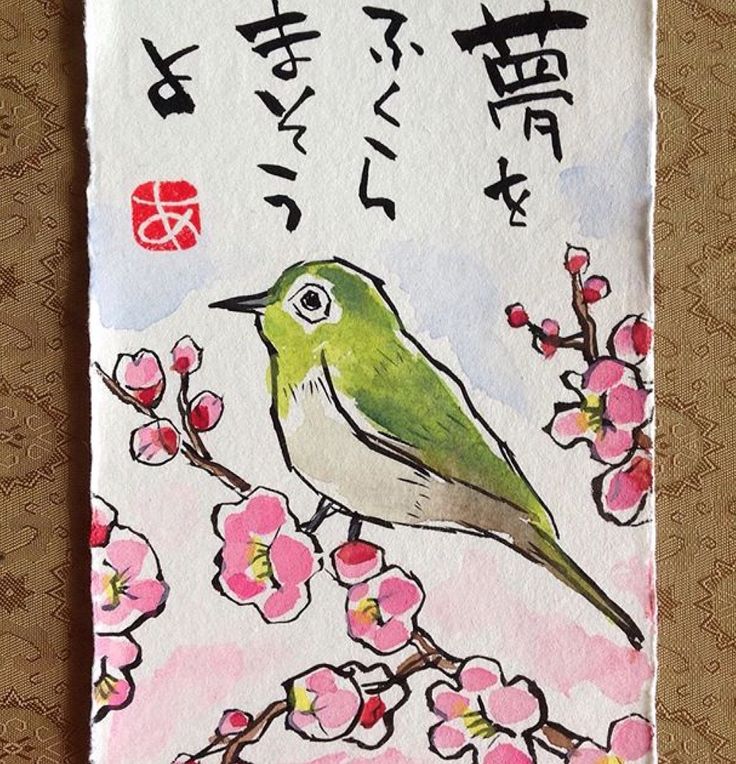 夢を
ふくら
まそう
よ
あ